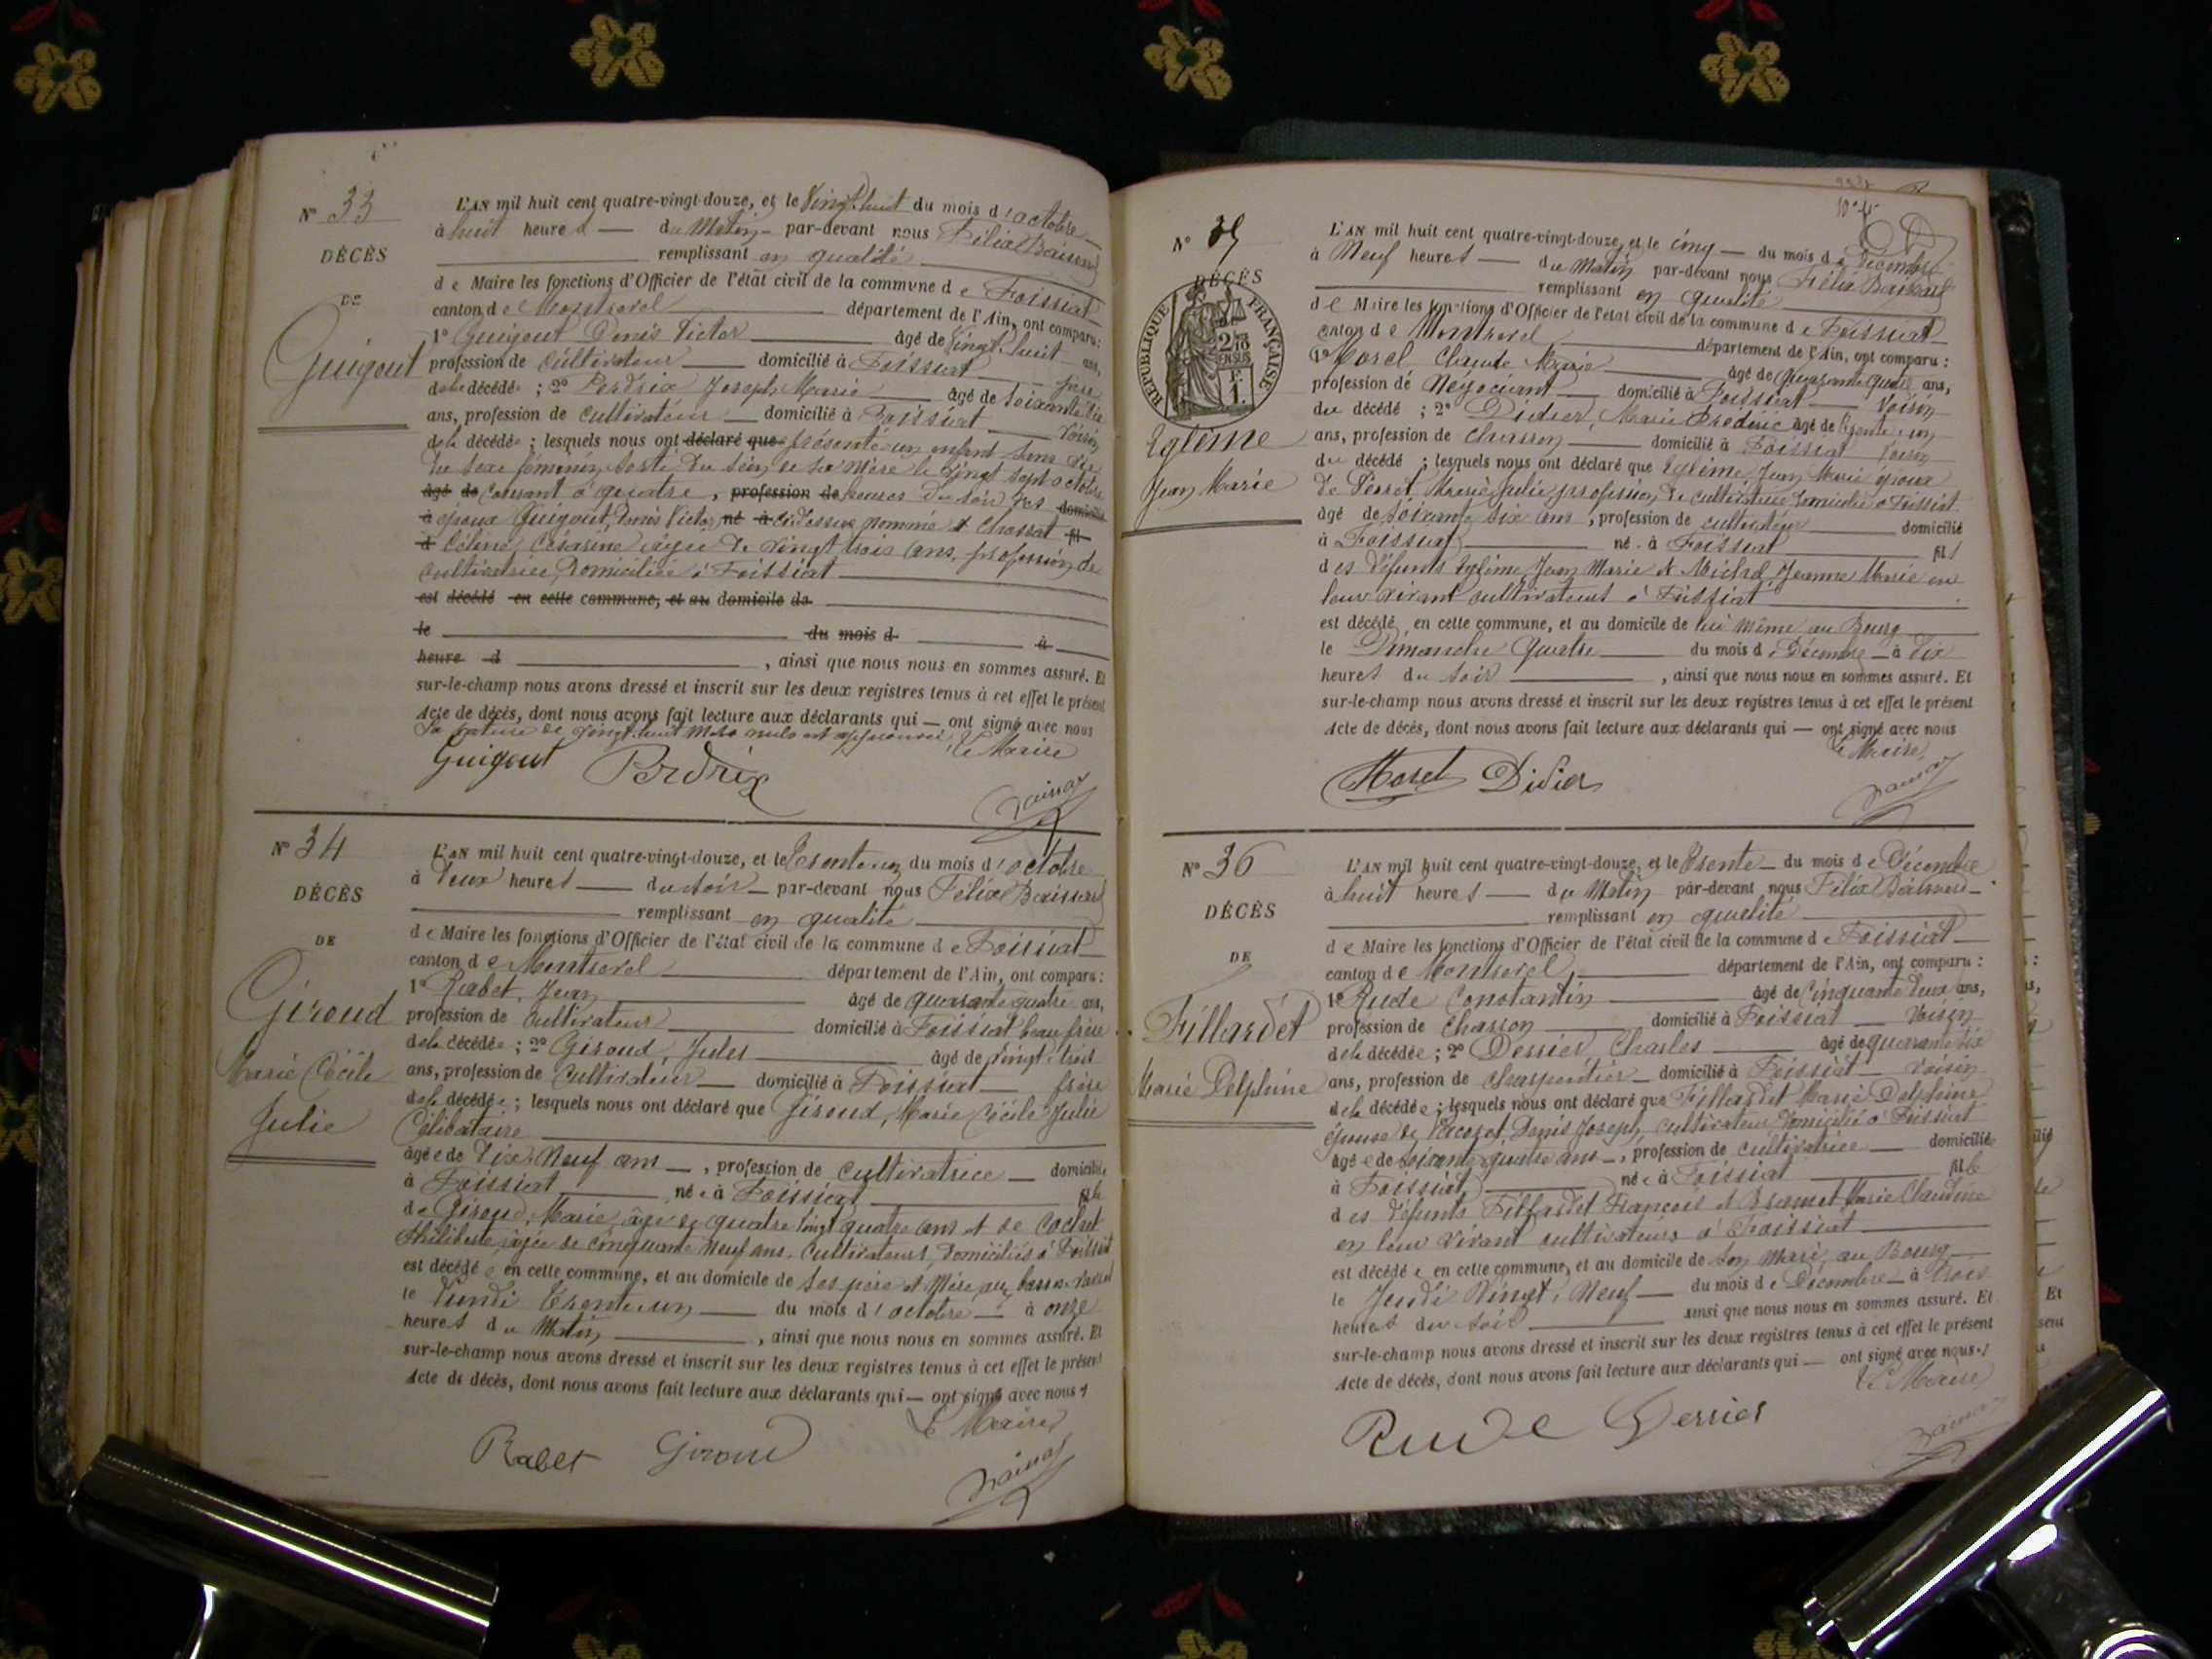 N° 33
DÉCÈS
DE
Guigout
L'AN mil huit cent quatre-vingt-douze, et le Vingt huit du mois d'octobre
à huit heures du Matin par-devant nous Félix
remplissant en qualité
de Maire les fonctions d'Officier de l'état civil de la commune de Foissiat
canton de Montrevel département de l'Ain, ont comparu :
1° Guigout Denis Victor âgé de Vingt huit ans,
profession de Cultivateur domicilié à Foissiat père
de la décédée ; 2° Perdrix Joseph Marie âgé de soixante dix
ans, profession de Cultivateur domicilié à Foissiat Voisin
de la décédée ; lesquels nous ont déclaré que présenté un enfant sans vie
du sexe féminin, sorti du sein de sa mère le vingt sept octobre
âgé de Courant à quatre, profession de heures du soir des domicilié
à époux Guigout, Denis Victor né à ci-dessus nommé et Chossat fil
d Céline Césarine âgée de vingt trois ans, profession de
cultivatrice, domiciliée à Foissiat
est décédé en cette commune, et au domicile de
le du mois d à
heure d , ainsi que nous nous en sommes assuré. Et
sur-le-champ nous avons dressé et inscrit sur les deux registres tenus à cet effet le présent
Acte de décès, dont nous avons fait lecture aux déclarants qui — ont signé avec nous
La rature de vingt huit mots nuls est approuvée. Le Maire
Guigout Perdrix
N° 34
DÉCÈS
DE
Giroud
Marie Cécile
Julie
L'AN mil huit cent quatre-vingt-douze, et le trente un du mois d'octobre
à Deux heures du soir par-devant nous Félix
remplissant en qualité
de Maire les fonctions d'Officier de l'état civil de la commune de Foissiat
canton de Montrevel département de l'Ain, ont comparu :
1° Rabet, Jean âgé de quarante quatre ans,
profession de Cultivateur domicilié à Foissiat beau frère
de la décédée ; 2° Giroud, Jules âgé de vingt trois
ans, profession de Cultivateur domicilié à Foissiat frère
de la décédée ; lesquels nous ont déclaré que Giroud, Marie Cécile Julie
Célibataire
âgée de Dix Neuf ans , profession de cultivatrice domiciliée
à Foissiat née à Foissiat fille
de Giroud, Marie âgé de quatre vingt quatre ans et de Cochet
Philiberte âgée de cinquante neuf ans. Cultivateurs, domiciliés à Foissiat
est décédée en cette commune, et au domicile de ses père et Mère
le Lundi trente un du mois d'octobre à onze
heures du Matin , ainsi que nous nous en sommes assuré. Et
sur-le-champ nous avons dressé et inscrit sur les deux registres tenus à cet effet le présent
Acte de décès, dont nous avons fait lecture aux déclarants qui — ont signé avec nous
Le Maire
Rabet Giroud
N° 35
DÉCÈS
RÉPUBLIQUE FRANÇAISE
2/10 EN SUS
F. 1.
Eglème
Jean Marie
L'AN mil huit cent quatre-vingt-douze, et le cinq du mois de Décembre
à Neuf heures du Matin par-devant nous Félix
remplissant en qualité
de Maire les fonctions d'Officier de l'état civil de la commune de Foissiat
canton de Montrevel département de l'Ain, ont comparu :
1° Morel Claude Marie âgé de quarante ans,
profession de Négociant domicilié à Foissiat Voisin
du décédé ; 2° Didier, Marie Frédéric âgé de trente un
ans, profession de charron domicilié à Foissiat Voisin
du décédé ; lesquels nous ont déclaré que Eglème, Jean Marie époux
de Perret Marie Julie profession de cultivatrice domiciliée à Foissiat
âgé de soixante six ans , profession de cultivateur domicilié
à Foissiat né à Foissiat fils
des défunts Eglème, Jean Marie et Michel Jeanne Marie en
leur vivant cultivateurs à Foissiat
est décédé en cette commune, et au domicile de lui même au Bourg
le Dimanche Quatre du mois de Décembre à Dix
heures du soir , ainsi que nous nous en sommes assuré. Et
sur-le-champ nous avons dressé et inscrit sur les deux registres tenus à cet effet le présent
Acte de décès, dont nous avons fait lecture aux déclarants qui — ont signé avec nous
Le Maire
Morel Didier
N° 36
DÉCÈS
DE
Fillardet
Marie Delphine
L'AN mil huit cent quatre-vingt-douze, et le trente du mois de Décembre
à huit heures du Matin par-devant nous Félix
remplissant en qualité
de Maire les fonctions d'Officier de l'état civil de la commune de Foissiat
canton de Montrevel département de l'Ain, ont comparu :
1° Rude Constantin âgé de Cinquante Deux ans,
profession de Charron domicilié à Foissiat Voisin
de la décédée ; 2° Dessier Charles âgé de quarante six
ans, profession de charpentier domicilié à Foissiat Voisin
de la décédée ; lesquels nous ont déclaré que Fillardet Marie Delphine
épouse de Denis Joseph, cultivateur domicilié à Foissiat
âgée de soixante quatre ans , profession de cultivatrice domiciliée
à Foissiat née à Foissiat fille
des défunts Fillardet François et Marie Claudine
en leur vivant cultivateurs à Foissiat
est décédée en cette commune, et au domicile de son Mari, au Bourg
le Jeudi Vingt Neuf du mois de Décembre à trois
heures du soir ainsi que nous nous en sommes assuré. Et
sur-le-champ nous avons dressé et inscrit sur les deux registres tenus à cet effet le présent
Acte de décès, dont nous avons fait lecture aux déclarants qui — ont signé avec nous
Le Maire
Rude Dessier